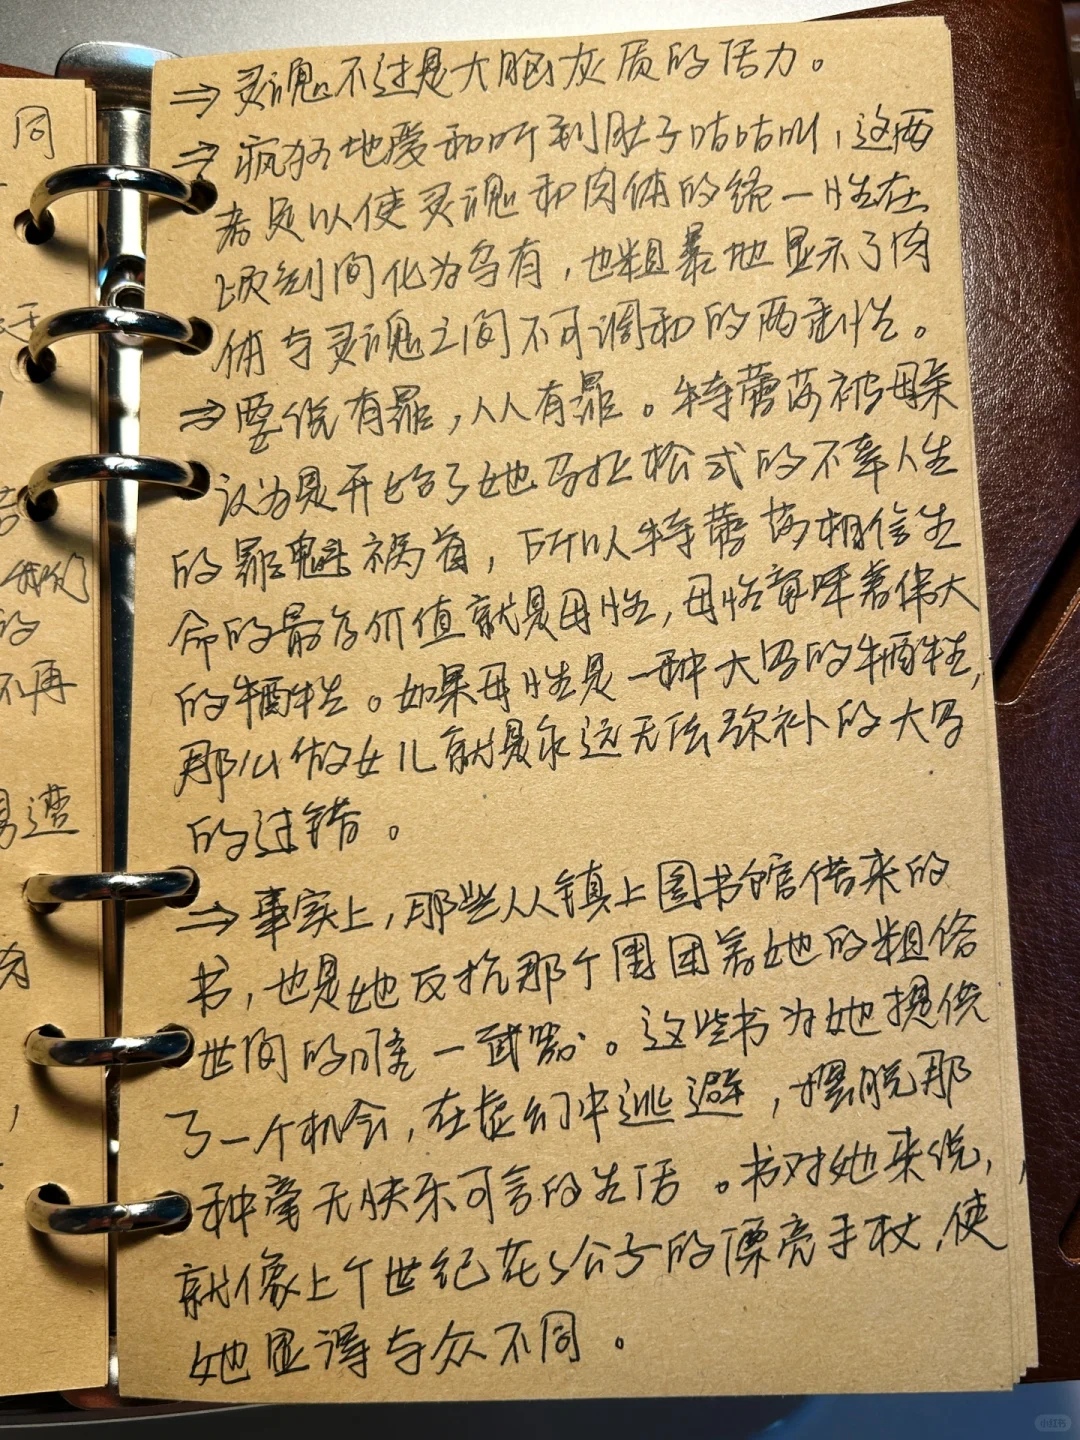 同
⇒ 灵魂不过是大脑灰质的活力。
⇒ 疯狂地爱和听到肚子咕咕叫，这两
者足以使灵魂和肉体的统一性在
顷刻间化为乌有，也粗暴地显示了肉
体与灵魂之间不可调和的两重性。
⇒ 要说有罪，人人有罪。特蕾莎被母亲
认为是开始了她马拉松式的不幸人生
的罪魁祸首，所以特蕾莎相信生
命的最高价值就是母性，母性意味着伟大
的牺牲。如果母性是一种大写的牺牲，
那么做女儿就是永远无法弥补的大写
的过错。
⇒ 事实上，那些从镇上图书馆借来的
书，也是她反抗那个围困着她的粗俗
世间的唯一武器。这些书为她提供
了一个机会，在虚幻中逃避，摆脱那
种毫无快乐可言的生活。书对她来说，
就像上个世纪花花公子的漂亮手杖，使
她显得与众不同。
我们
的
不再
易遭
小红书